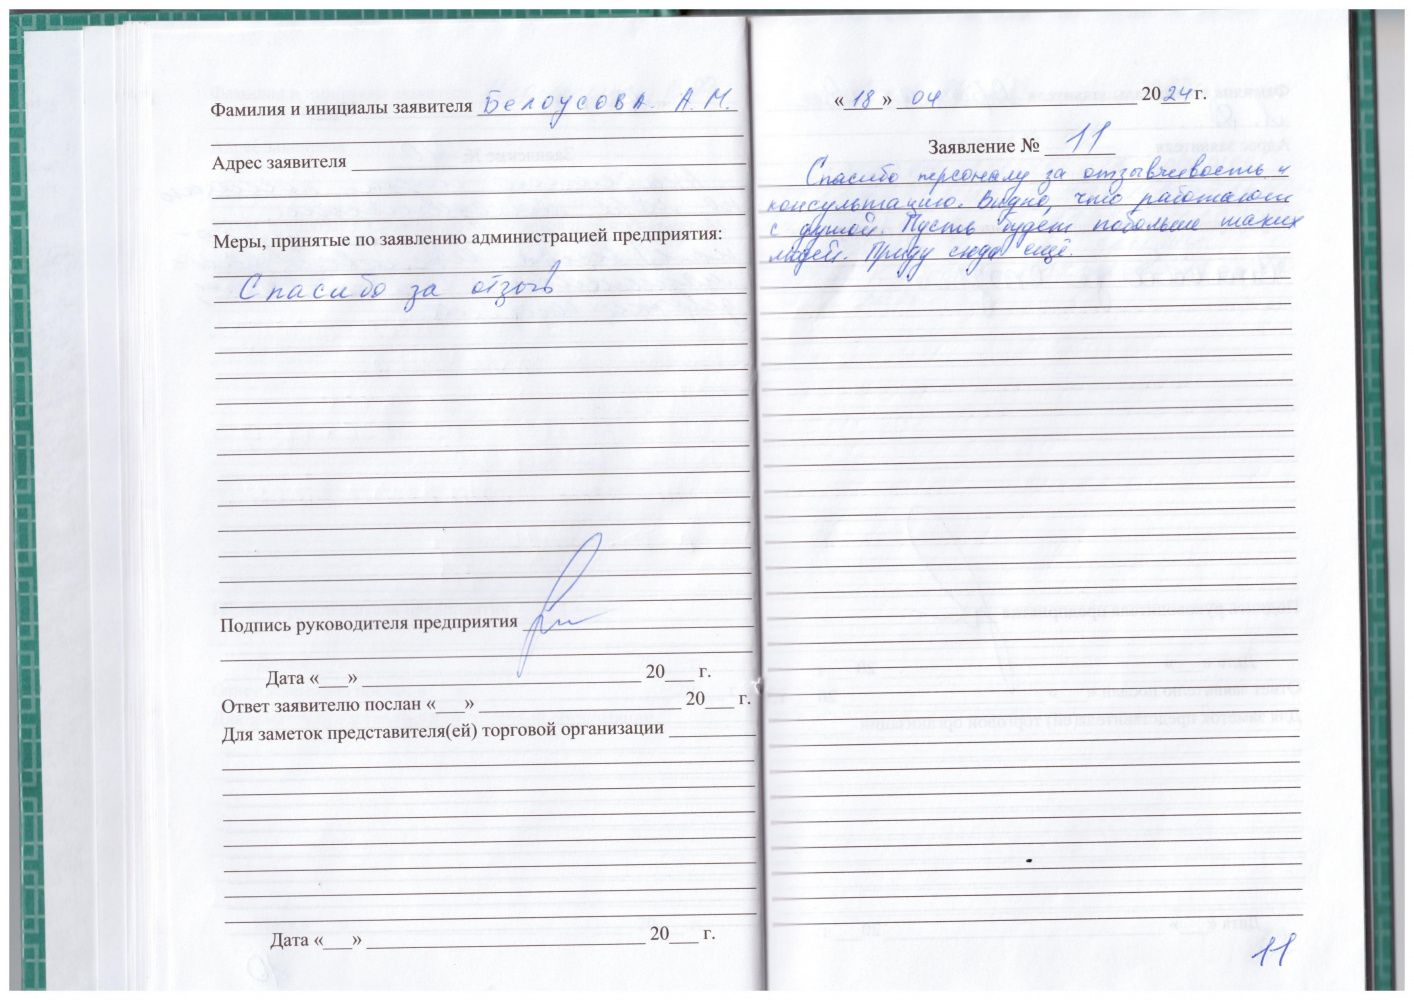 Фамилия и инициалы заявителя Белоусова. А.М.
Адрес заявителя
Меры, принятые по заявлению администрацией предприятия:
Спасибо за отзыв
Подпись руководителя предприятия
Дата «___» ____ 20___ г.
Ответ заявителю послан «___» ____ 20___ г.
Для заметок представителя(ей) торговой организации
Дата «___» ____ 20___ г.
«18» 04 2024 г.
Заявление № 11
Спасибо персоналу за отзывчивость и
консультацию. Видно, что работают
с душой. Пусть будет побольше таких
людей. Приду сюда ещё.
11